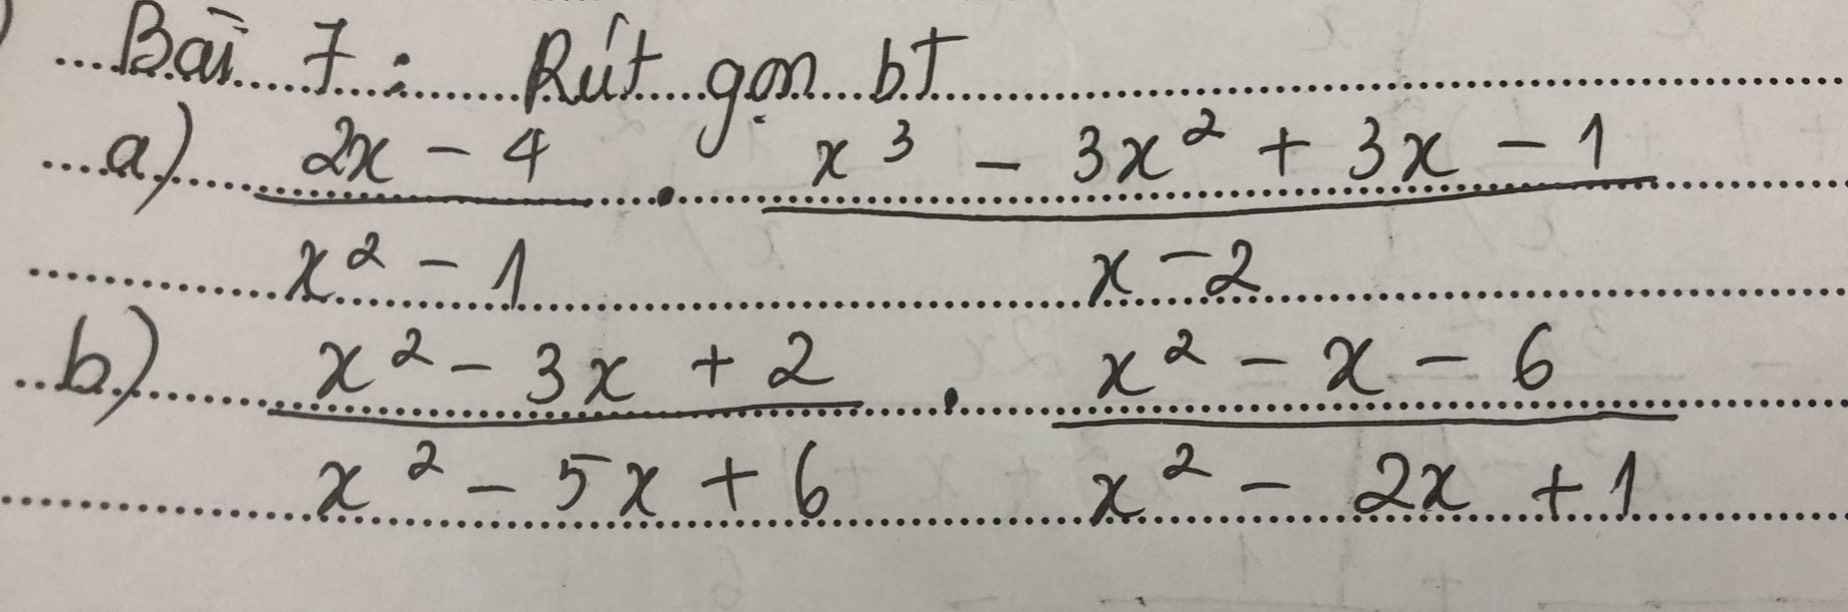 Bài 7: Rút gọn bt
a) 2x - 4 . x³ - 3x² + 3x - 1
x² - 1 x - 2
b) x² - 3x + 2 . x² - x - 6
x² - 5x + 6 x² - 2x + 1